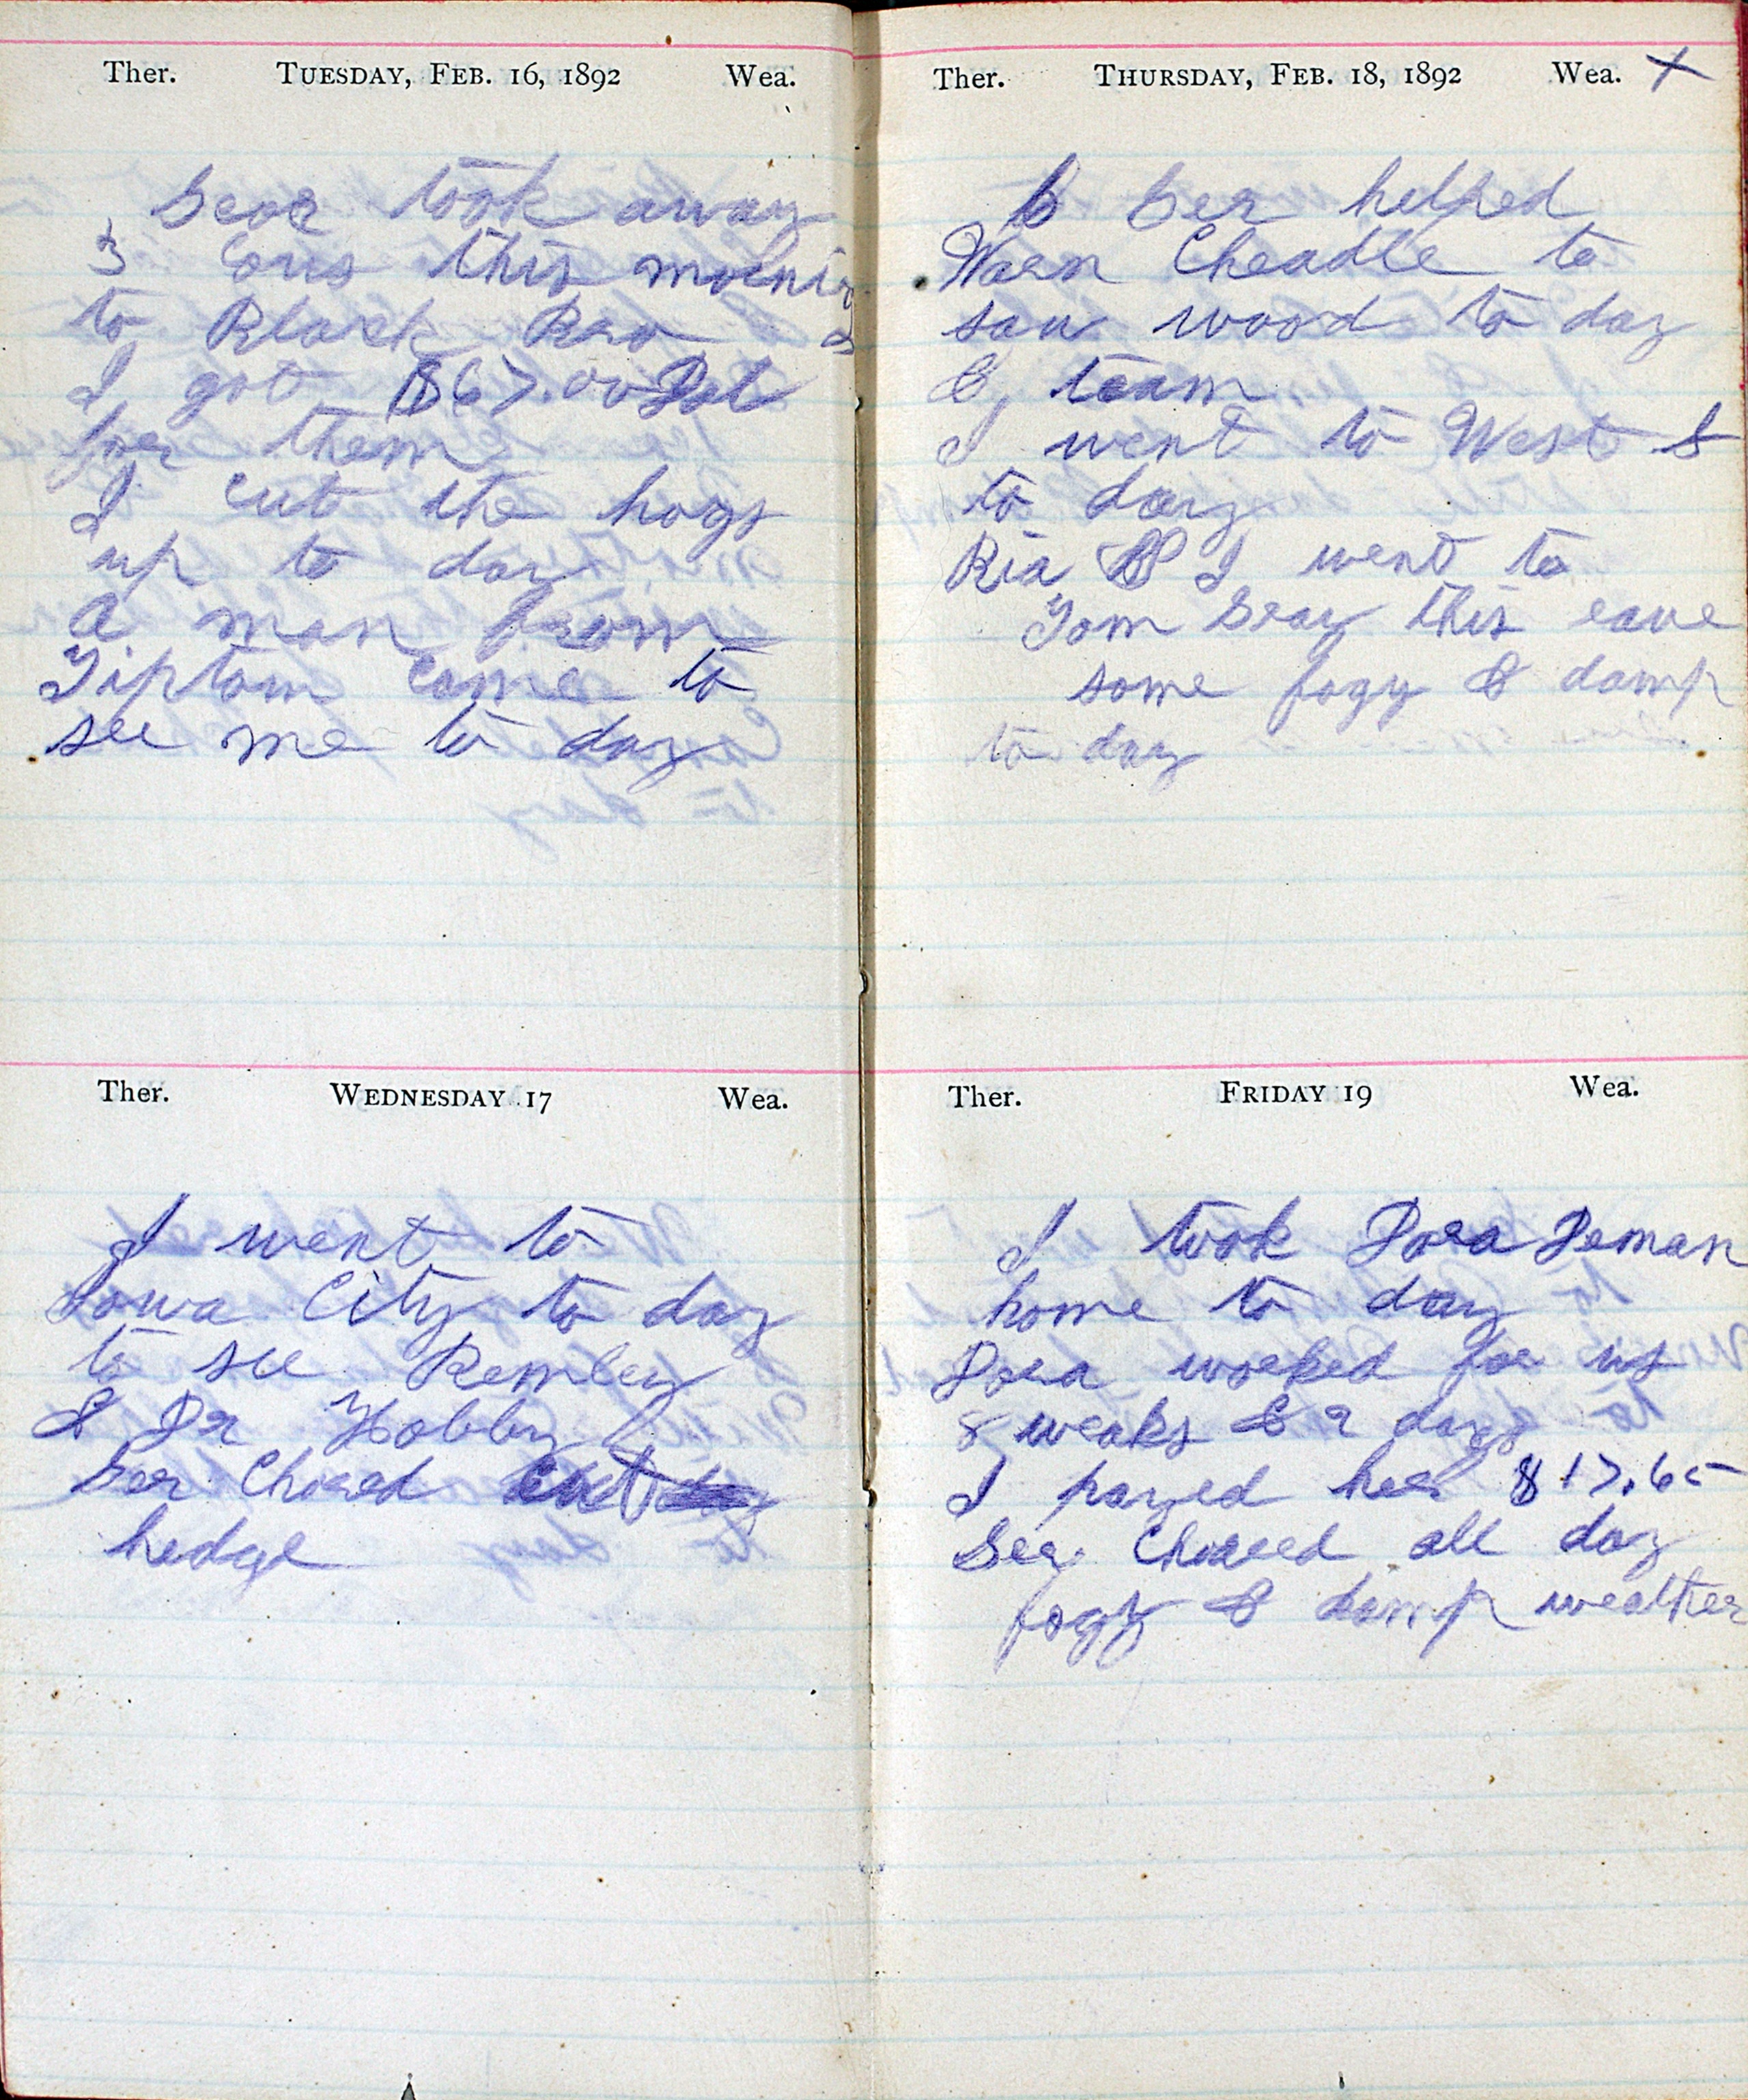 Ther. TUESDAY, FEB. 16, 1892 Wea.
took away
3 Cows this morning
to Black Bro s
I got $67.00 Dol
for them
I cut the hogs
up to day
A man from
Tiptom Came to
see me to day
Ther. WEDNESDAY 17 Wea.
I went to
Iowa City to day
to see Remley
& Dr Hobby
Ger Chored cut
hedge
Ther. THURSDAY, FEB. 18, 1892 Wea. X
Ger helped
Warn Cheadle to
saw wood to day
& team
I went to West B
to day
Ria & I went to
Tom Gray this eave
some fogy & damp
to day
Ther. FRIDAY 19 Wea.
I took Dora Deman
home to day
Dora worked for us
8 weaks & 2 days
I payed her $17.65
Ger Chored all day
fogy & damp weather